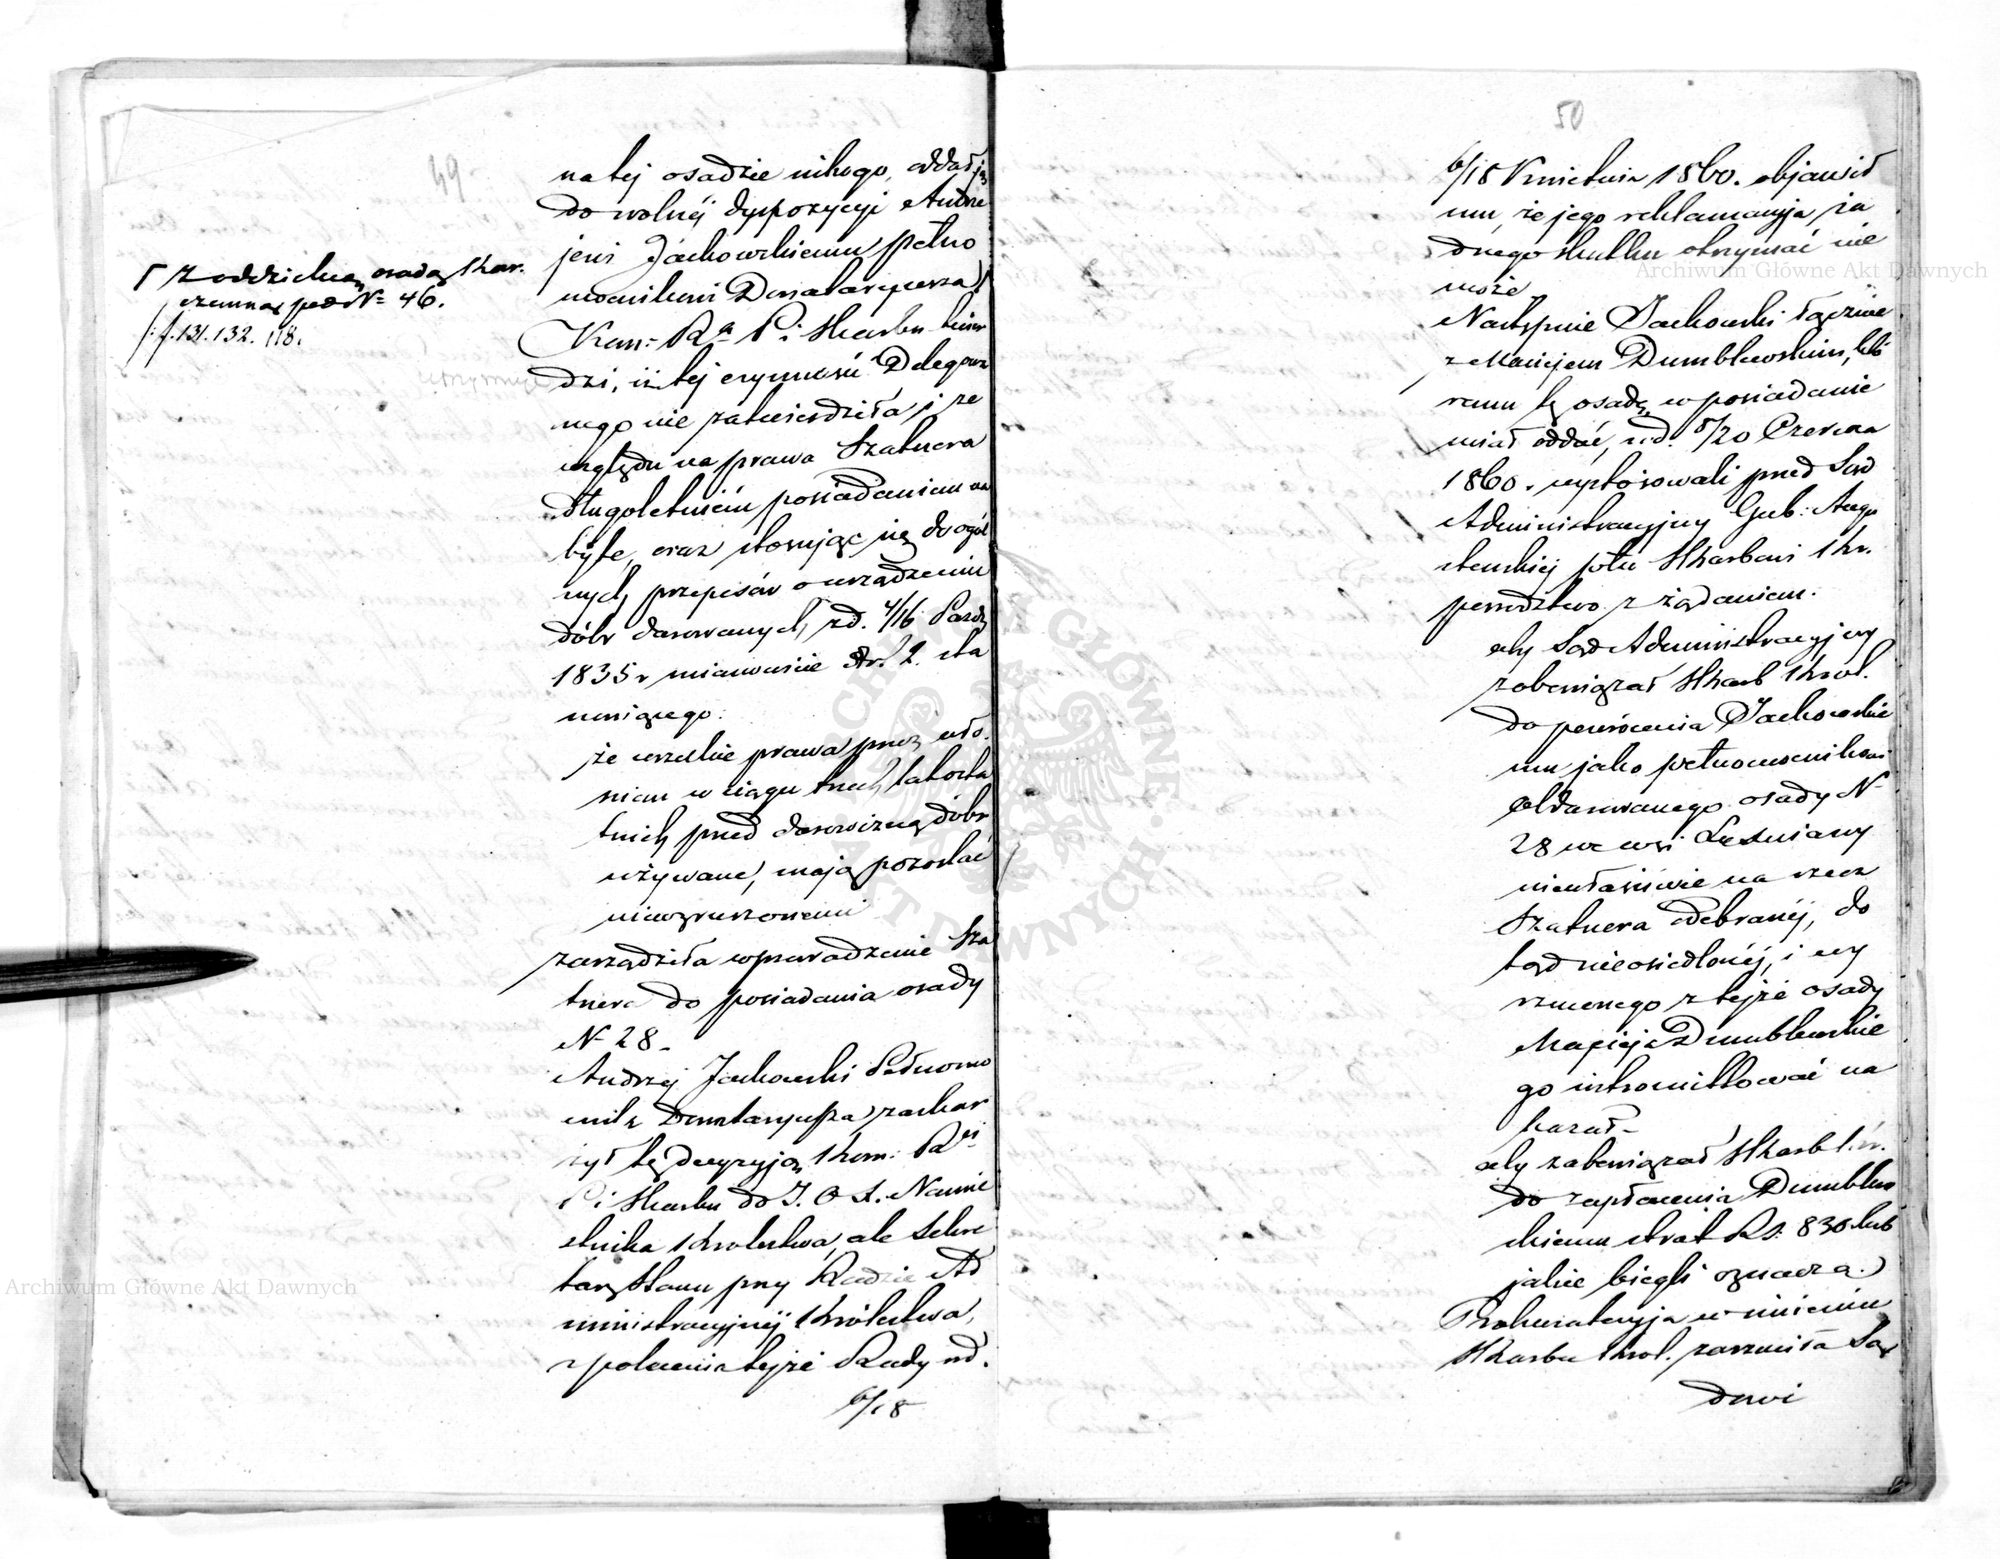 49
na tej osadzie nikogo, oddał ją
do wolnéj dyspozycyi Andrze
jowi Jachowskiemu pełno
mocnikowi Donataryusza
Γ Z oddzielną osadą kar
czemną pod N= 46.
/: f. 131. 132. 118.
Kom: R. P. i Skarbu twier
dzi, iż tej czynności Delegowa
nego nie zatwierdziła i ze
względu na prawa Szatnera
długoletniém posiadaniem na
byte, oraz stosując się do ogól
nych przepisów o urządzeniu
dóbr darowanych z d. 4/16 Paźdz
1835 r mianowicie Art. 2. sta
nowiącego:
że wszelkie prawa przez wło.
ścian w ciągu trzech lat osta
tnich przed darowizną dóbr
używane, mają pozostać
niewzruszonemi
zarządziła wprowadzenie Sza
tnera do posiadania osady
N 28.
Andrzej Jachowski Pełnomo
cnik Donataryusza zaskar
żył tę decyzyją Kom: R
P i Skarbu do J. O. X. Namie
stnika Królestwa, ale Sekre
tarz Stanu przy Radzie Ad
ministracyjnéj Królestwa,
z polecenia tejże Rady od.
6/18
50
6/18 Kwietnia 1860. objawił
mu, że jego reklamacyja, ża
dnego skutku otrzymać nie
może
Następnie Jachowski łącznie
z Maciejem Dumblewskim, któ
remu tę osadę w posiadanie
miał oddać, u d. 8/20 Czerwca
1860. wystósowali przed Sąd
Administracyjny Gub: Augu
stowskiej p-tu Skarbowi Kr.
powództwo z żądaniem.
aby Sąd Administracyjny
zobowiązał Skarb Król.
do powrócenia Jachowskie
mu jako pełnomocnikowi
Obdarowanego osady N=
28 we wsi Leśniany
niewłaściwie na rzecz
Szatnera odebranéj, do
tąd nieosiedlonéj, i wy
rzuconego z tejże osady
Macieja Dumblewskie
go intromittować na
kazał-
aby zobowiązał Skarb Kr.
do zapłacenia Dumblew
skiemu strat Rs: 830 lub
jakie biegli oznaczą.
Prokuratoryja w imieniu
Skarbu Król. zarzuciła Są
dowi